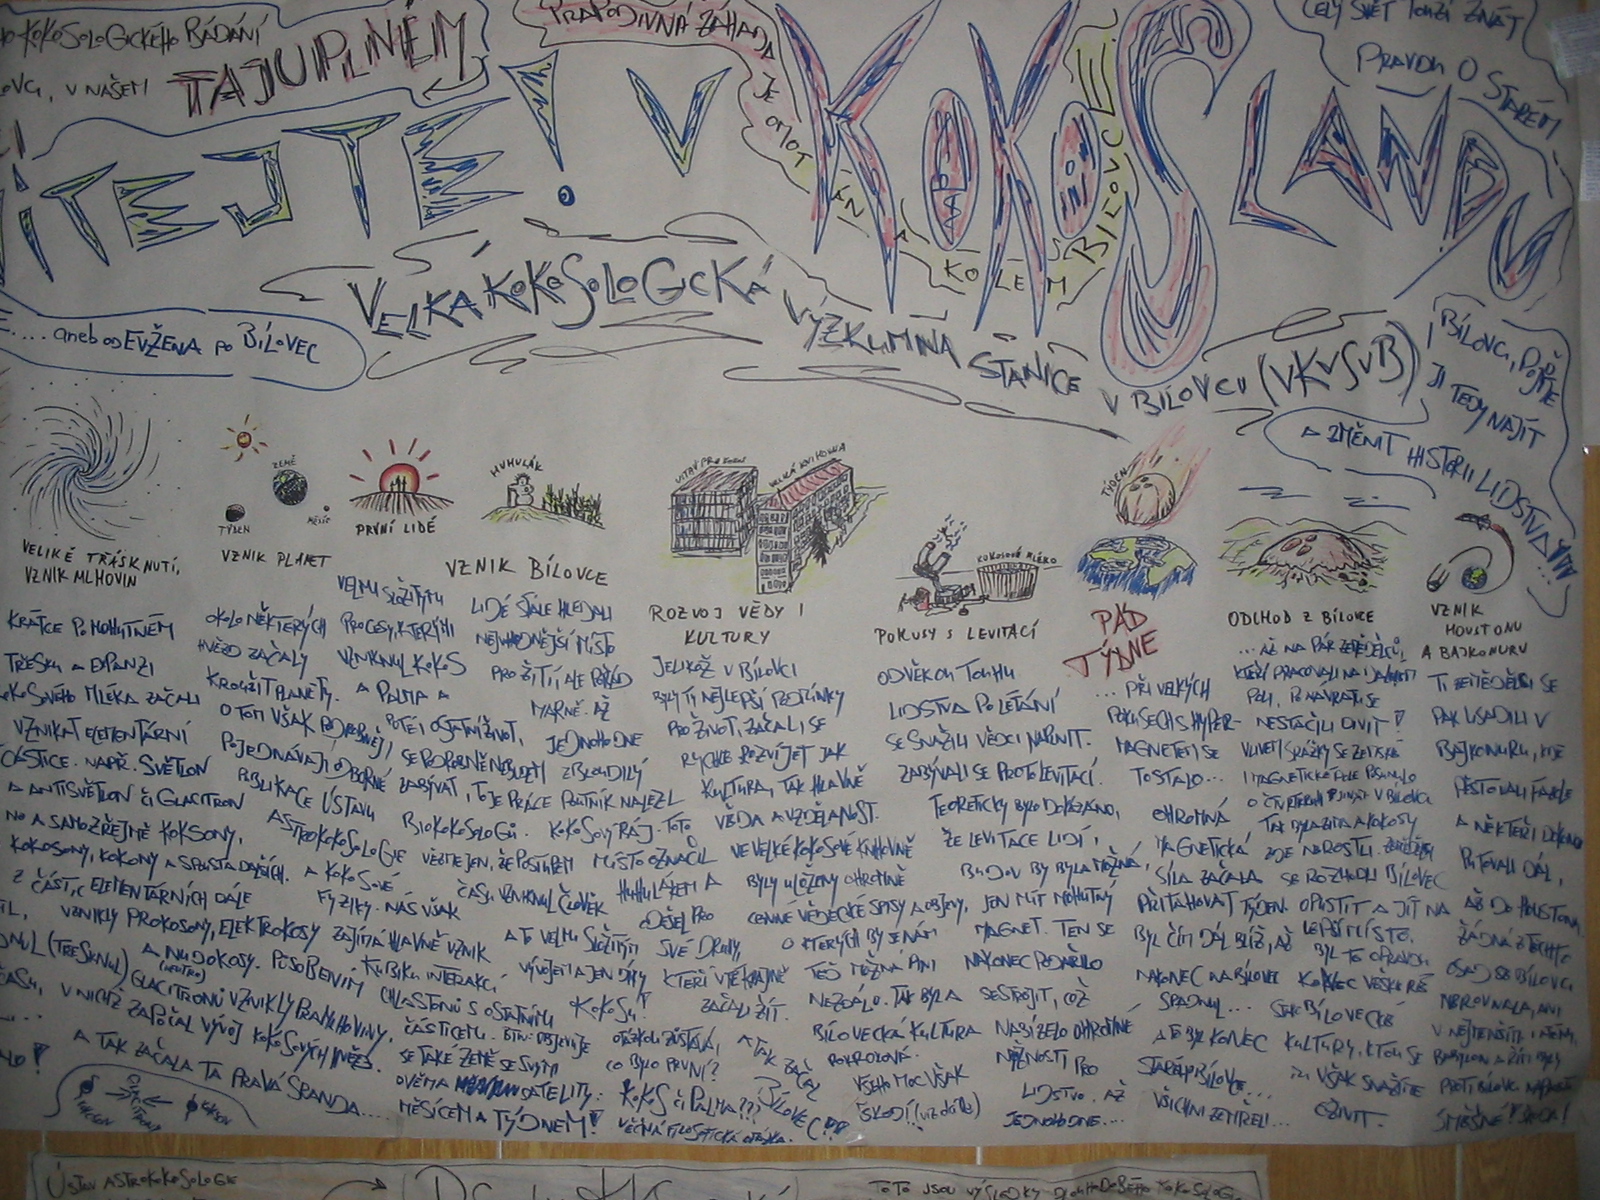 KOKOSOLOGICKÉHO BÁDÁNÍ
V NAŠEM TAJUPLNÉM
VÍTEJTE! V KOKOSLANDU
PRAPODIVNÁ ZÁHADA
JE
KOLEM
BÍLOVCE
CELÝ SVĚT TOUŽÍ ZNÁT
PRAVDU O STARÉM
BÍLOVCI, POJĎME
JI TEDY NAJÍT
A ZMĚNIT HISTORII LIDSTVA
.... aneb od EVŽENA po BÍLOVEC
VELKÁ KOKOSOLOGICKÁ
VÝZKUMNÁ STANICE
V BÍLOVCU (VKVSVB)
VELIKÉ TŘÁSKNUTÍ,
VZNIK MLHOVIN
KRÁTCE PO MOHUTNÉM
TŘESKU A EXPANZI
KOKOSOVÉHO MLÉKA ZAČALI
VZNIKAT ELEMENTÁRNÍ
ČÁSTICE. NAPŘ. SVĚTLON
A ANTISVĚTLON ČI GLACITRON
NO A SAMOZŘEJMĚ KOKSONY,
KOKOSONY, KOKONY A SPUSTA DALŠÍCH.
Z ČÁSTIC ELEMENTÁRNÍCH DÁLE
VZNIKLY PROKOSONY, ELEKTROKOSY
A NUDOKOSY. PŮSOBENÍM
GLACITRONŮ VZNIKLY PRAMLHOVINY,
V NICHŽ ZAPOČAL VÝVOJ KOKOSOVÝCH HVĚZD.
A TAK ZAČALA TA PRAVÁ SRANDA....
ZEMĚ
TÝDEN
MĚSÍC
VZNIK PLANET
OKOLO NĚKTERÝCH
HVĚZD ZAČALY
KROUŽIT PLANETY.
O TOM VŠAK PODROBNĚJI
POJEDNÁVAJÍ ODBORNÉ
PUBLIKACE ÚSTAVU
ASTROKOKOSOLOGIE
A KOKOSOVÉ
FYZIKY. NÁS VŠAK
ZAJÍMÁ HLAVNĚ VZNIK
KUBIKU INTERAKCÍ
CHLASTONŮ S OSTATNÍMI
ČÁSTICEMI. BTW: OBJEVUJE
SE TAKÉ ZEMĚ SE SVÝMI
DVĚMA SATELITY:
MĚSÍCEM A TÝDNEM!
PRVNÍ LIDÉ
VELMI SLOŽITÝMI
PROCESY, KTERÝMI
VZNIKNUL KOKOS
A PALMA A
POTÉ I OSTATNÍ ŽIVOT,
SE PODROBNĚ NEBUDEM
ZABÝVAT, TO JE PRÁCE
BIOKOKOSOLOGŮ.
VĚZME JEN, ŽE POSTUPEM
ČASU VZNIKNUL ČLOVĚK
A TO VELMI SLOŽITÝM
VÝVOJEM A JEN DÍKY
KOKOSU!
OTÁZKOU ZŮSTÁVÁ,
CO BYLO PRVNÍ?
KOKOS ČI PALMA???
VĚČNÁ FILOSOFICKÁ OTÁZKA.
HUHULÁK
VZNIK BÍLOVCE
LIDÉ STÁLE HLEDALI
NEJVHODNĚJŠÍ MÍSTO
PRO ŽITÍ, ALE POŘÁD
MARNĚ. AŽ
JEDNOHO DNE
ZBLOUDILÝ
POUTNÍK NALEZL
KOKOSOVÝ RÁJ. TOTO
MÍSTO OZNAČIL
HUHULÁKEM A
ODEŠEL PRO
SVÉ DRUHY,
KTEŘÍ V TÉ KRAJINĚ
ZAČALI ŽÍT.
A TAK
ZAČAL
BÍLOVEC!
VELKÁ KNIHOVNA
ROZVOJ VĚDY I
KULTURY
JELIKOŽ V BÍLOVCI
BYLY TY NEJLEPŠÍ PODMÍNKY
PRO ŽIVOT, ZAČALI SE
RYCHLE ROZVÍJET JAK
KULTURA, TAK HLAVNĚ
VĚDA A VZDĚLANOST.
VE VELKÉ KOKOSOVÉ KNIHOVNĚ
BYLY ULOŽENY OHROMNĚ
CENNÉ VĚDECKÉ SPISY A OBJEVY,
O KTERÝCH BY JE NÁM
TEĎ MOŽNÁ ANI
NEZDÁLO. TAK BYLA
BÍLOVECKÁ KULTURA
POKROKOVÁ.
VŠEHO MOC VŠAK
ŠKODÍ (viz dále)
KOKOSOVÉ MLÉKO
POKUSY S LEVITACÍ
ODVĚKOU TOUHU
LIDSTVA PO LÉTÁNÍ
SE SNAŽILI VĚDCI NAPLNIT.
ZABÝVALI SE PROTO LEVITACÍ.
TEORETICKY BYLO DOKÁZÁNO,
ŽE LEVITACE LIDÍ,
BUDOV BY BYLA MOŽNÁ,
JEN MÍT MOHUTNÝ
MAGNET. TEN SE
NAKONEC PODAŘILO
SESTROJIT, COŽ
NABÍZELO OHROMNÉ
MOŽNOSTI PRO
LIDSTVO. AŽ
JEDNOHO DNE....
TÝDEN
PÁD
TÝDNE
... PŘI VELKÝCH
POKUSECH S HYPER-
MAGNETEM SE
TO STALO...
OHROMNÁ
MAGNETICKÁ
SÍLA ZAČALA
PŘITAHOVAT TÝDEN.
BYL ČÍM DÁL BLÍŽ, AŽ
NAKONEC NA BÍLOVEC
SPADNUL...
A TO BYL KONEC
STARÉHO BÍLOVCE...
VŠICHNI ZEMŘELI...
ODCHOD Z BÍLOVCE
... AŽ NA PÁR ZEMĚDĚLCŮ,
KTEŘÍ PRACOVALI NA
POLI, PO NÁVRATU SE
NESTAČILI DIVIT!
VLIVEM SRÁŽKY SE ZEMSKÉ
I MAGNETICKÉ POLE POSUNULO
TAK BYLA ZIMA A KOKOSY
ZDE NEROSTLI. ZEMĚDĚLCI
SE ROZHODLI BÍLOVEC
OPUSTIT A JÍT NA
LEPŠÍ MÍSTO.
BYL TO OPRAVDU
KONEC VEŠKERÉ
BÍLOVECKÉ
KULTURY, KTOU SE
VŠAK SNAŽÍME
OŽIVIT.
VZNIK
HOUSTONU
A BAJKONURU
TI ZEMĚDĚLCI SE
PAK USADILI V
BAJKONURU, KDE
PĚSTOVALI FAZOLE
A NĚKTEŘÍ DOKONCE
PUTOVALI DÁL,
AŽ DO HOUSTONU.
ŽÁDNÁ Z TĚCHTO
OSAD SE BÍLOVCI
NEROVNALA, ANI
BABYLON A ŘÍM BYLY
PROTI BÍLOVCI NAPROSTO
SMĚŠNÉ!
ÚSTAV ASTROKOKOSOLOGIE
TOTO JSOU VÝSLEDKY DLOUHODOBÉHO KOKOSOLOGI